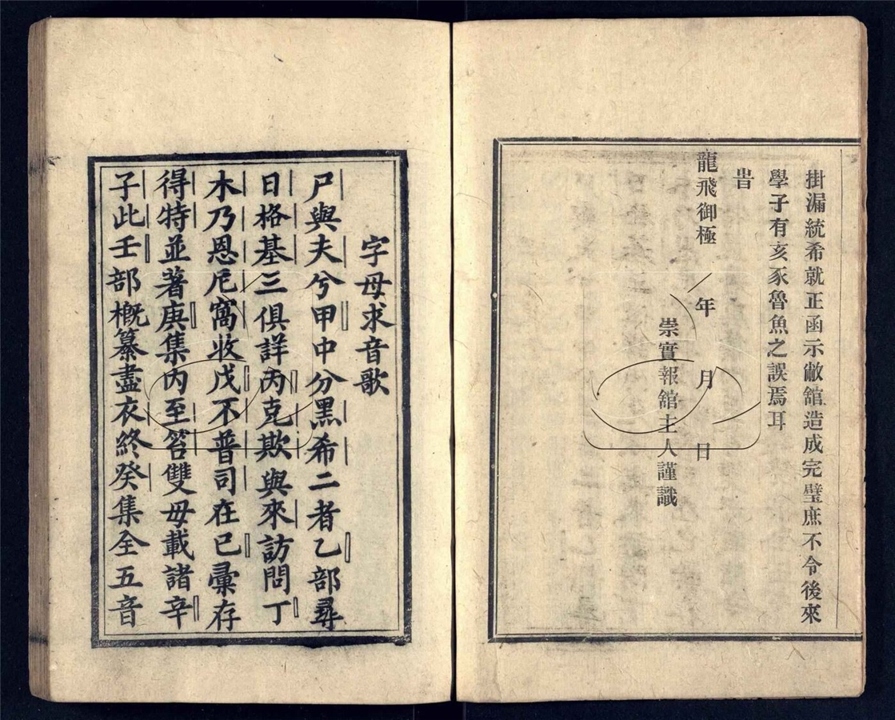 掛漏統希就正函示敝舘造成完璧庶不令後來
學子有亥豕魯魚之誤焉耳
旹
龍飛御極 年 月 日
崇實報舘主人謹識
字母求音歌
尸與夫兮甲中分黑希二者乙部尋
日格基三俱詳丙克欺與來訪問丁
木乃恩尼窩收戊不普司在已彙存
得特並著庚集內至笞雙母載諸辛
子此壬部概纂盡衣終癸集全五音